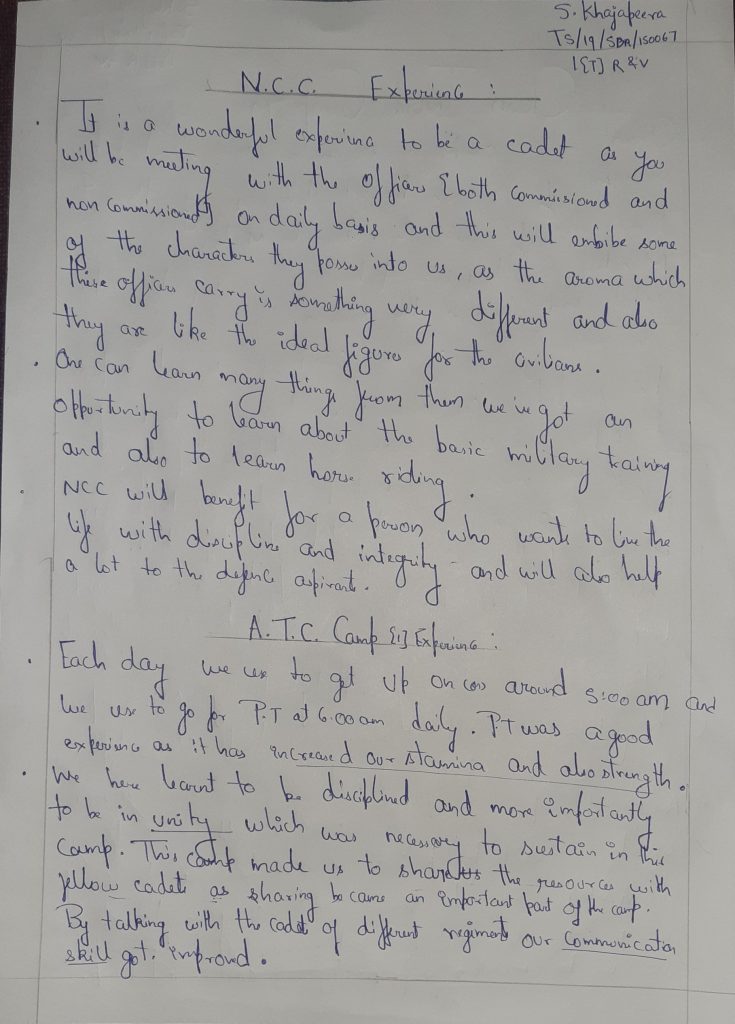 S. Khajapeera
TS/19/SDR/150067
1[T] R & V
N.C.C. Experience :
It is a wonderful experience to be a cadet as you
will be meeting with the officers {both commissioned and
non commissioned} on daily basis and this will embibe some
of the characters they posses into us, as the aroma which
these officers carry is something very different and also
they are like the ideal figures for the civilians.
One can learn many things from them we've got an
opportunity to learn about the basic military training
and also to learn horse riding.
NCC will benefit for a person who wants to live the
life with discipline and integrity and will also help
a lot to the defence aspirants.
A.T.C. Camp Experience :
Each day we use to get up on around 5:00 am and
we use to go for P.T at 6:00 am daily. P.T was a good
experience as it has increased our stamina and also strength.
We here learnt to be disciplined and more importantly
to be in unity which was necessary to sustain in this
camp. This camp made us to share the resources with
fellow cadets as sharing became an important part of the camp.
By talking with the cadets of different regiments our communication
skill got improved.